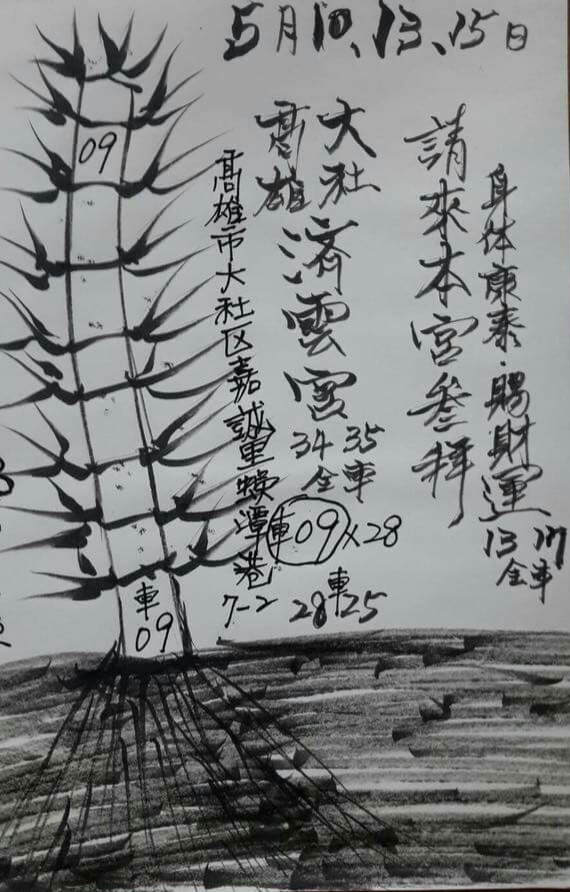 5月10、13、15日
身体康泰.賜財運
13 17
全車
請來本宮參拜
大社
高雄
濟雲宮
34 35
全車
車09×28
28車25
高雄市大社区嘉誠里蜈潭巷
7-2
09
車
09